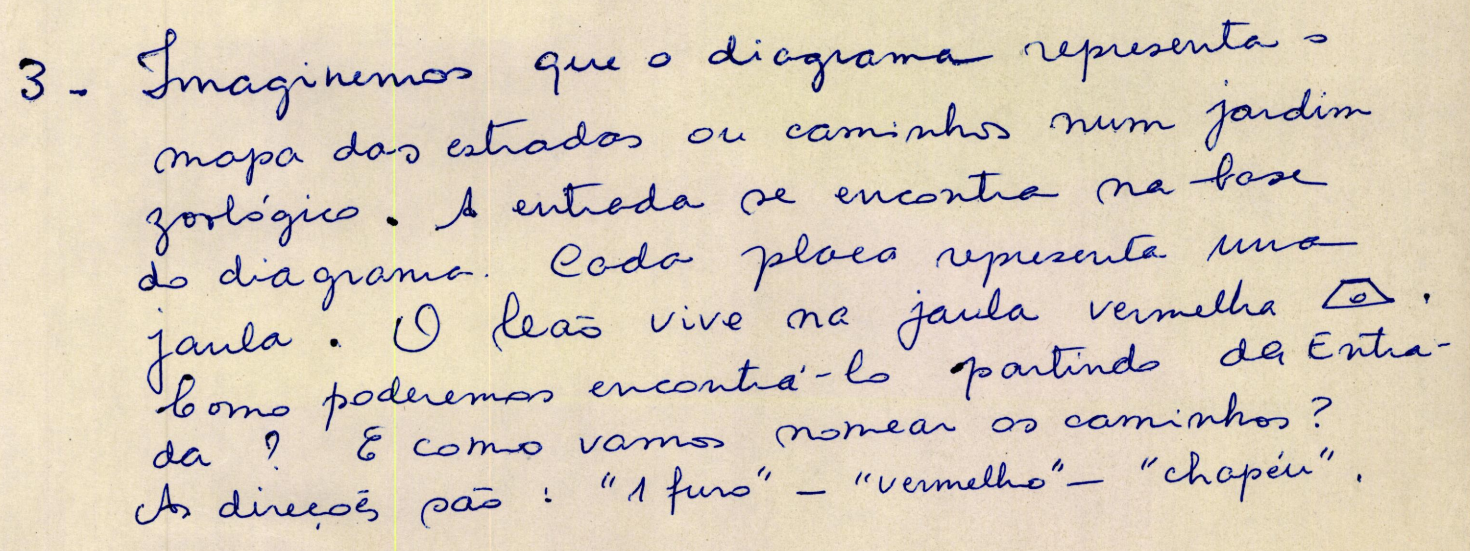 3 - Imaginemos que o diagrama representa o
mapa das estradas ou caminhos num jardim
zoológico. A entrada se encontra na base
do diagrama. Cada placa representa uma
jaula. O leão vive na jaula vermelha.
Como poderemos encontrá-lo partindo da Entra-
da? E como vamos nomear os caminhos?
As direções são: "1 furo" - "vermelho" - "chapéu".